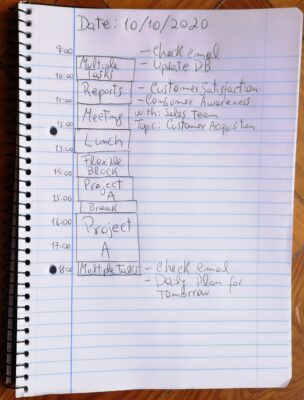 Date: 10/10/2020
9:00 - Check email
Multiple - Update DB
Tasks
10:00
Reports - Customer Satisfaction
11:00 - Consumer Awareness
Meeting with: Sales Team
12:00 Topic: Customer Acquisition
Lunch
13:00
Flexible
14:00 Block
Project
A
15:00
Break
16:00 Project
17:00
A
18:00 Multiple Tasks - Check email
- Daily Plan for
Tomorrow